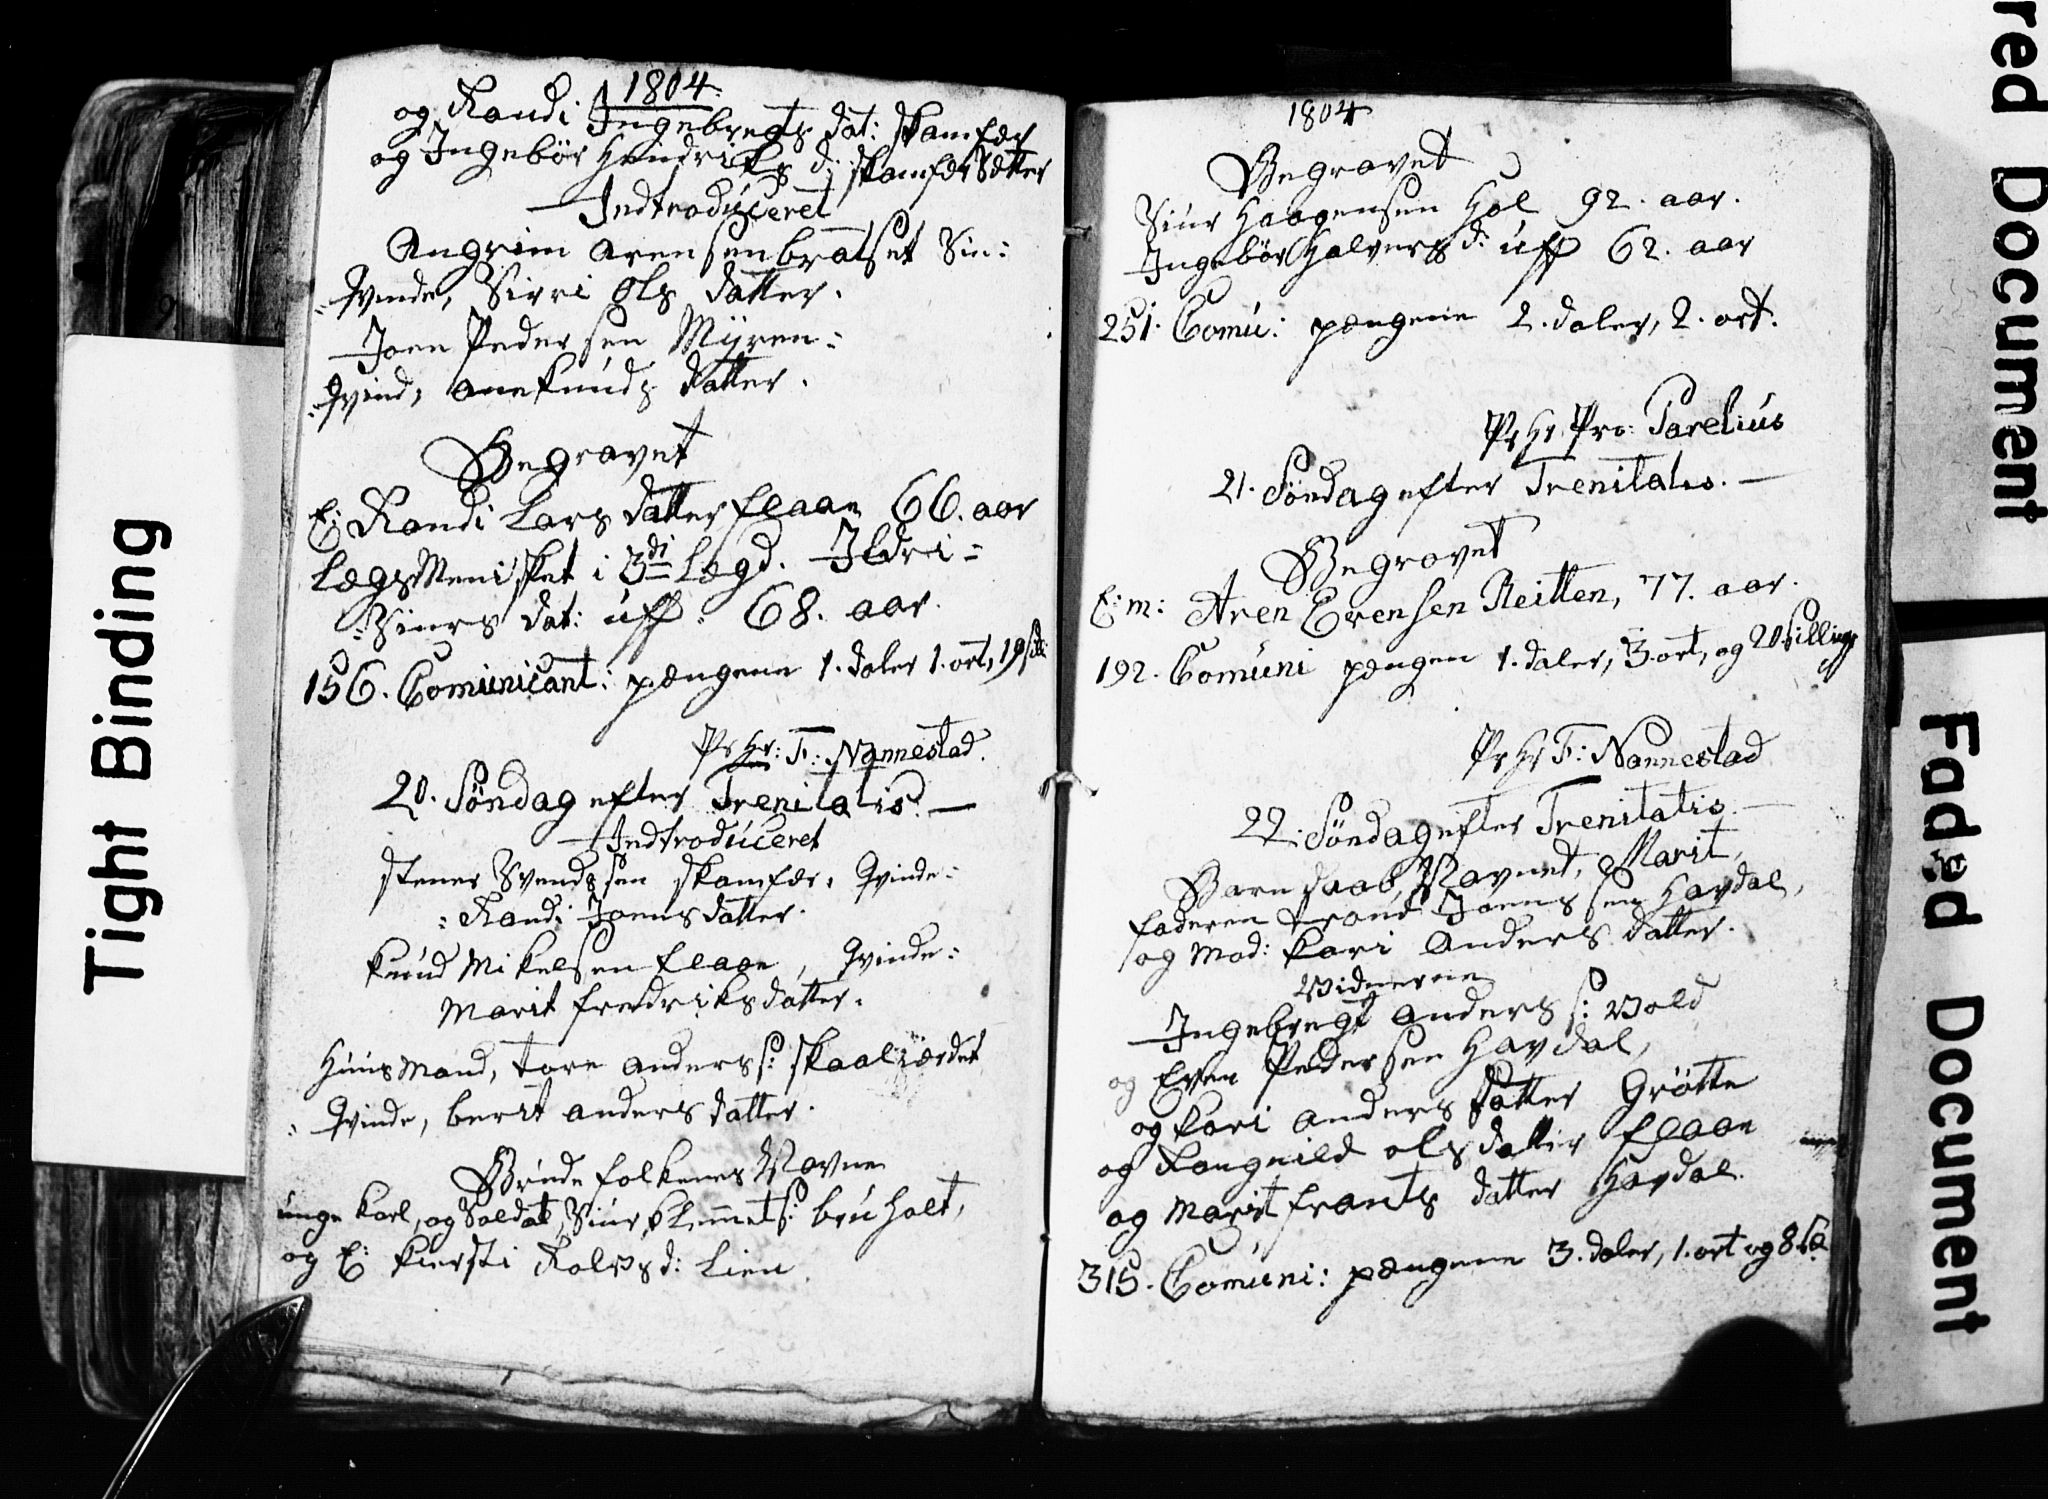 1804
og Randi Ingebregts dat: skamfær
og Ingebør Hendriks d: skamfærsetter
Indtroduceret
Angrim arensen bratset Sin:
Qvinde, Sirri Ols datter.
Joen Pedersen Myren:
Qvind, ane knuds datter.
Begravet
E: Randi Lars datter flaan 66. aar
LægsMenisket i 3di Lægd. Ildri=
=Siurs dat: uff: 68. aar.
156. Comunicant: pængene 1. daler 1. ort, 19 sk:
Pr Hr: F: Nannestad.
20. Söndag efter Trenitatis.
Indtroduceret
stener Svendssen skamfær, Qvinde=
=Randi Joens datter.
knud Mikelsen flaan, Qvinde=
Marit fredriks datter.
Huus Mand, tore anders s: skaaliærdet
Qvinde, berit anders datter.
Brude folkenes Navne
unge karl, og Soldat, Siur klemmets: bruholt,
og E: kiersti Rolvs d: Lien
1804
Begravet
Siur Haagensen Hol 92. aar.
Ingebör Halvers d: uff 62. aar
251. Comu: pængene 2. daler, 2. ort.
Pr Hr. Pro: Parelius
21. Söndag efter Trenitatis.
Begravet
E: m: Aren Erensen Reitten, 77. aar.
192. Comuni pængen 1. daler, 3. ort, og 20 sillings
Pr Hr F: Nannestad
22. Söndag efter Trenitatis.
Barn daab, Navnet, Marit,
faderen trond Joens sen Havdal,
og Mod: kari Anders datter.
Vidnerene
Ingebregt anders s: Vold
og Even Pedersen Havdal,
og kari anders datter Grötte
og Rangnild ols datter flaan
og Marit frants datter Havdal.
315. Comuni: pængene 3. daler, 1. ort og 8 sk
Tight Binding
red Document
Faded Document